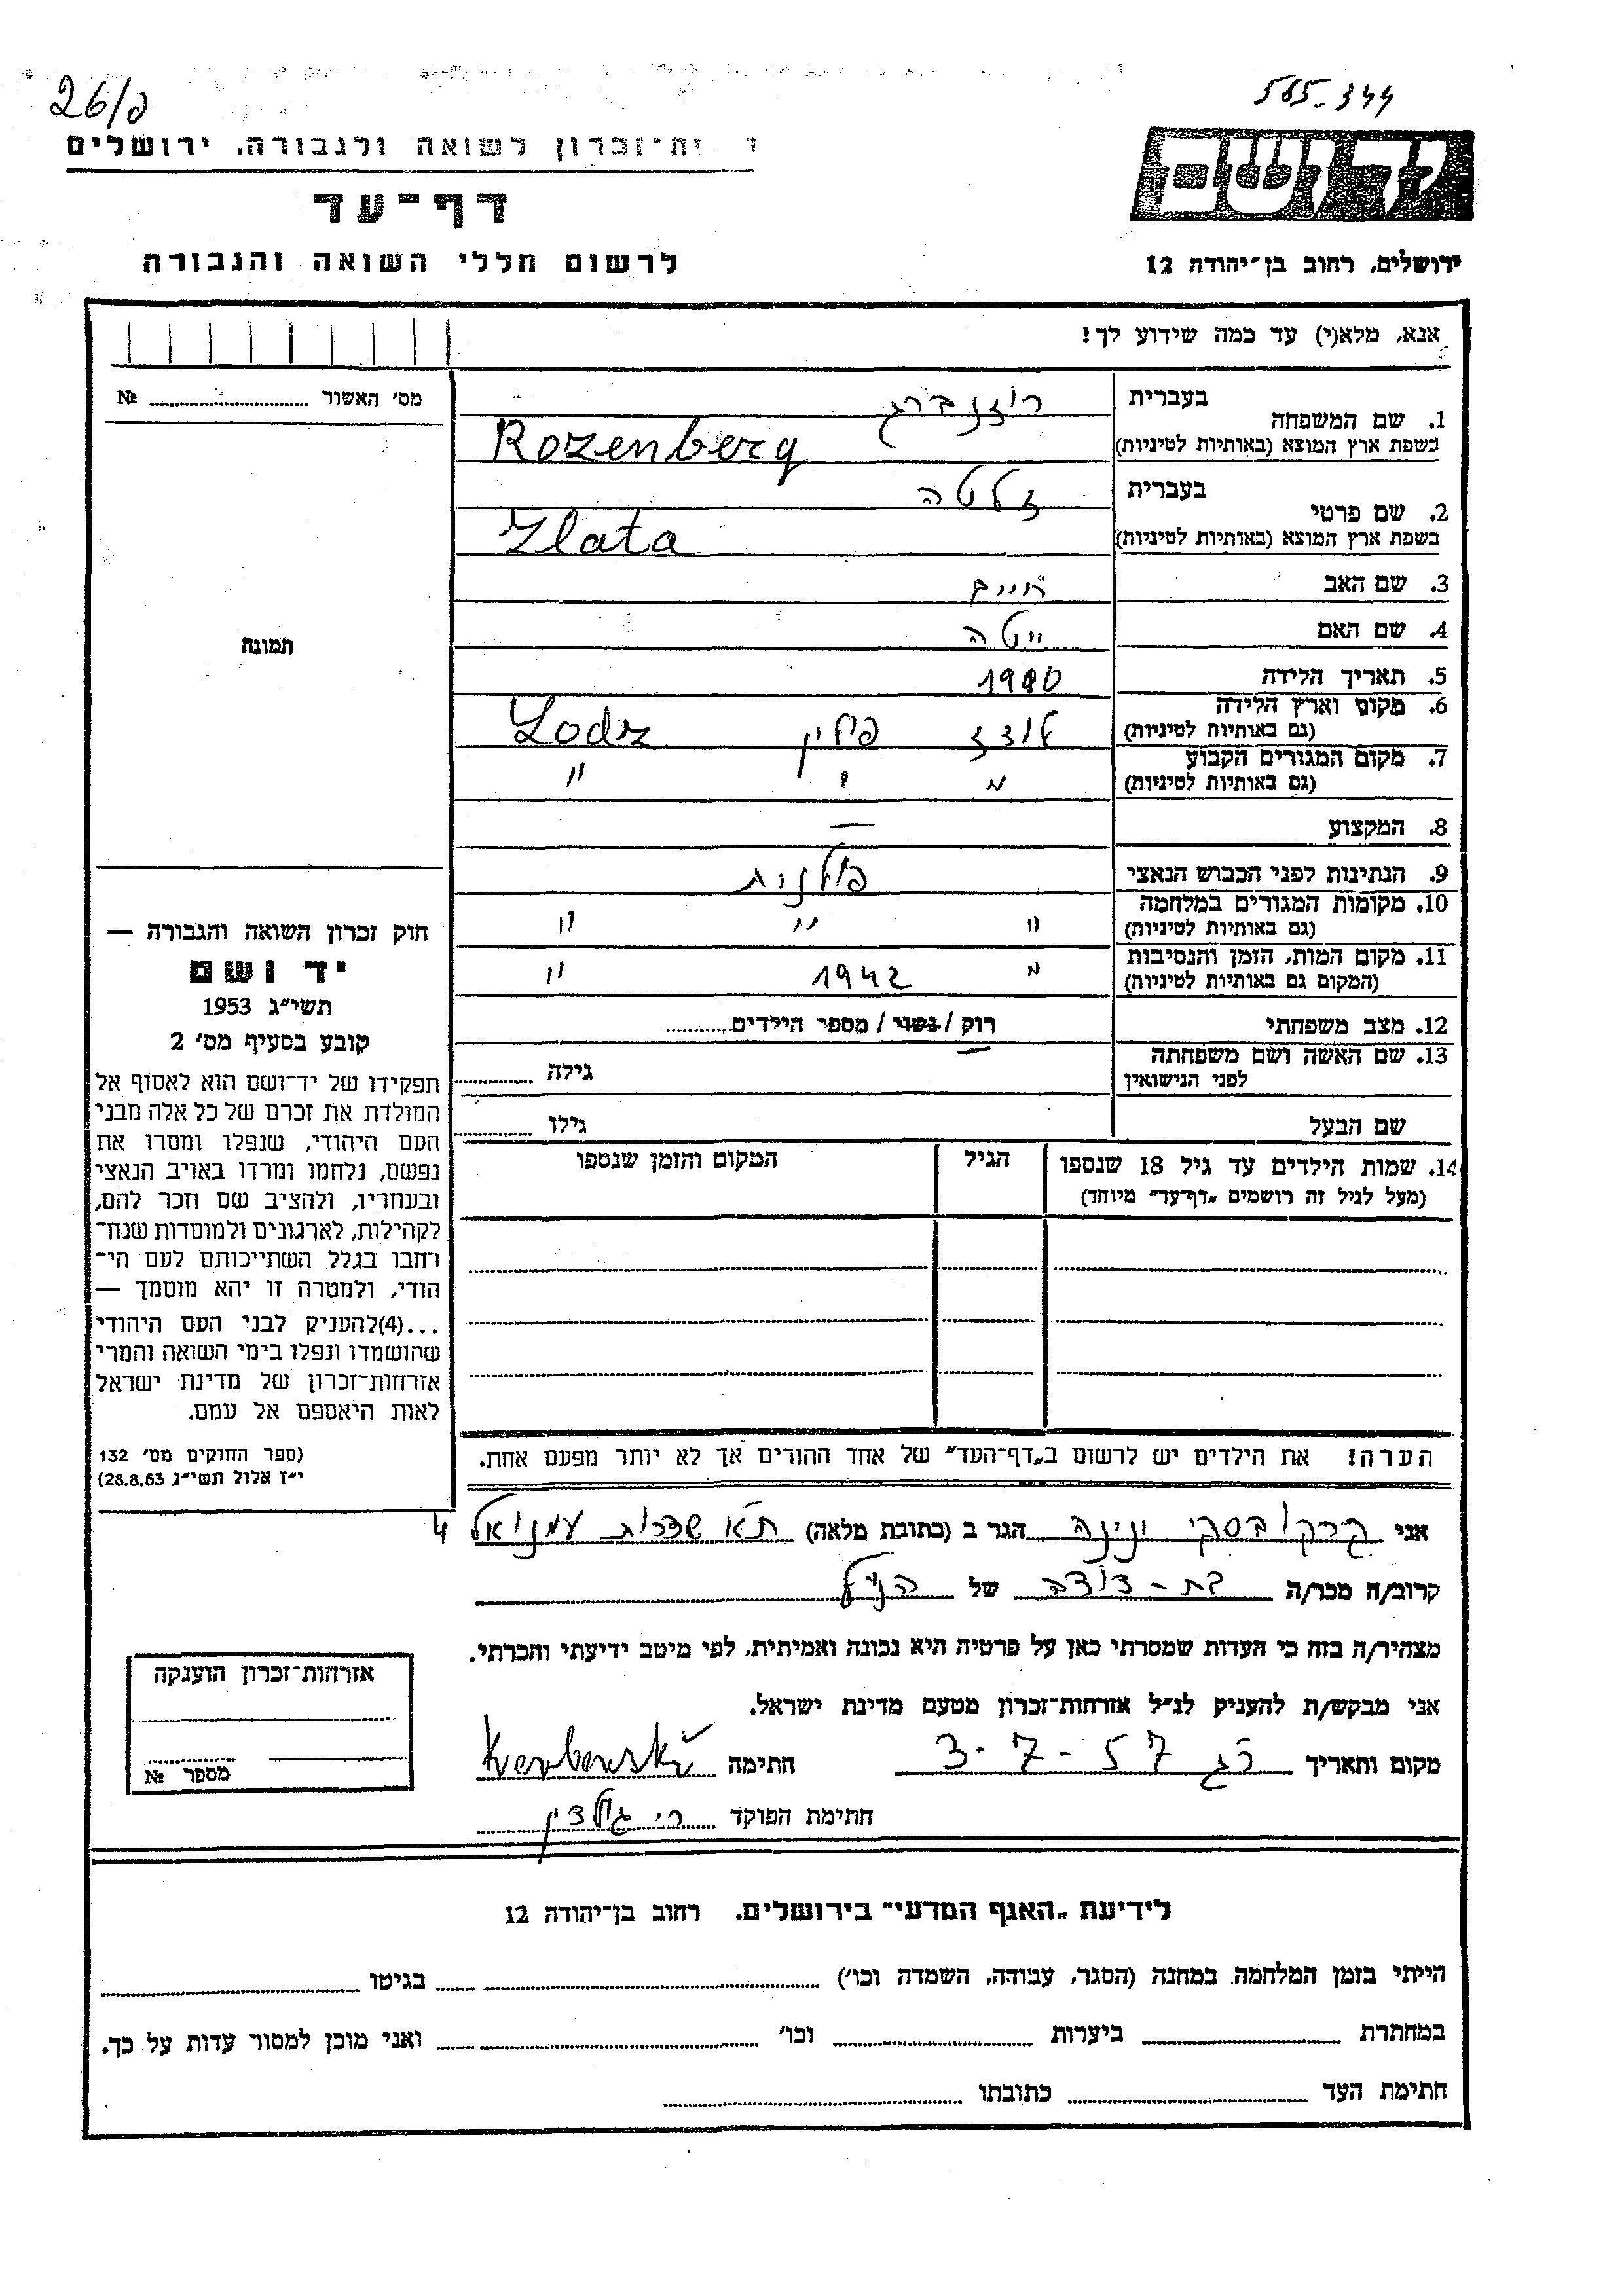 26/פ
565-344
ית־זכרון לשואה ולגבורה, ירושלים
דף־עד
לרשום חללי השואה והגבורה
ירושלים, רחוב בן־יהודה 12
אנא, מלא(י) עד כמה שידוע לך!
מס׳ האשור № 
1. שם המשפחה
בעברית רוזנברג
בשפת ארץ המוצא (באותיות לטיניות) Rozenberg
2. שם פרטי
בעברית זלטה
בשפת ארץ המוצא (באותיות לטיניות) Zlata
3. שם האב חיים
4. שם האם יטה
5. תאריך הלידה
6. מקום וארץ הלידה
(גם באותיות לטיניות) לודז פולין Lodz
7. מקום המגורים הקבוע
(גם באותיות לטיניות) " " "
8. המקצוע —
9. הנתינות לפני הכבוש הנאצי פולנית
10. מקומות המגורים במלחמה
(גם באותיות לטיניות) " " "
11. מקום המות, הזמן והנסיבות
(המקום גם באותיות לטיניות) " 1942 "
12. מצב משפחתי רוק / נשוי / מספר הילדים
13. שם האשה ושם משפחתה
לפני הנישואין — גילה
שם הבעל גילו
14. שמות הילדים עד גיל 18 שנספו
(מעל לגיל זה רושמים „דף־עד״ מיוחד)
הגיל
המקום והזמן שנספו
תמונה
חוק זכרון השואה והגבורה —
יד ושם
תשי״ג 1953
קובע בסעיף מס׳ 2
תפקידו של יד־ושם הוא לאסוף אל
המולדת את זכרם של כל אלה מבני
העם היהודי, שנפלו ומסרו את
נפשם, נלחמו ומרדו באויב הנאצי
ובעוזריו, ולהציב שם וזכר להם,
לקהילות, לארגונים ולמוסדות שנח־
רחבו בגלל השתייכותם לעם הי־
הודי, ולמטרה זו יהא מוסמך —
...(4)להעניק לבני העם היהודי
שהושמדו ונפלו בימי השואה והמרי
אזרחות־זכרון של מדינת ישראל
לאות היאספם אל עמם.
(ספר החוקים מס׳ 132
י״ז אלול תשי״ג 28.8.53)
הערה! את הילדים יש לרשום ב„דף־העד״ של אחד ההורים אך לא יותר מפעם אחת.
אני קרקובסקי ינינה הגר ב (כתובת מלאה) ת״א שדרות עמנואל 4
קרוב/ה מכר/ה בת-דודה של הנ״ל
מצהיר/ה בזה כי העדות שמסרתי כאן על פרטיה היא נכונה ואמיתית, לפי מיטב ידיעתי והכרתי.
אני מבקש/ת להעניק לנ״ל אזרחות־זכרון מטעם מדינת ישראל.
מקום ותאריך רג 3-7-57 חתימה
חתימת הפוקד
אזרחות־זכרון הוענקה
מספר №
לידיעת „האגף המדעי״ בירושלים. רחוב בן־יהודה 12
הייתי בזמן המלחמה במחנה (הסגר, עבודה, השמדה וכו׳) בגיטו
במחתרת ביערות וכו׳ ואני מוכן למסור עדות על כך.
חתימת העד כתובתו